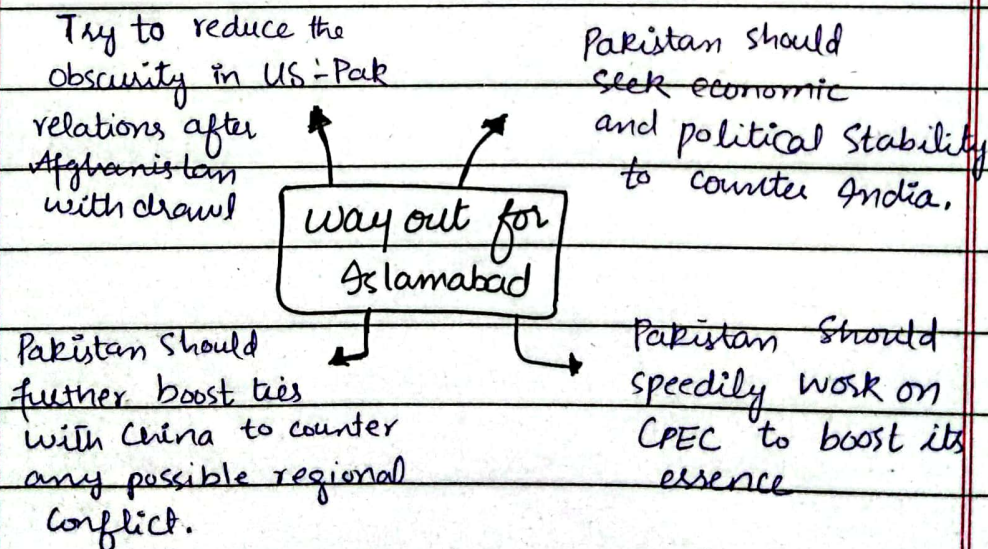 Try to reduce the
obscurity in US-Pak
relations after
Afghanistan
withdrawl
Pakistan should
seek economic
and political Stability
to counter India.
way out for
Islamabad
Pakistan Should
further boost ties
with China to counter
any possible regional
Conflict.
Pakistan Should
speedily work on
CPEC to boost its
essence